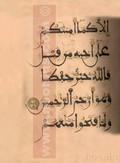 إلا كما أمنتكم
على أخيه من قبل
فالله خير حفظا
وهو أرحم الرحمين
ولما فتحوا متعهم